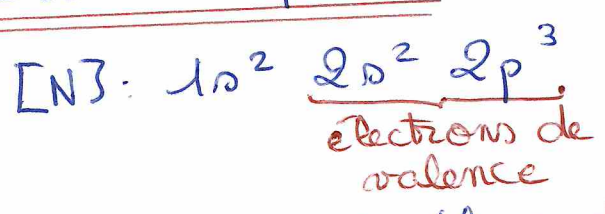 [N]: 1s² 2s² 2p³
électrons de
valence